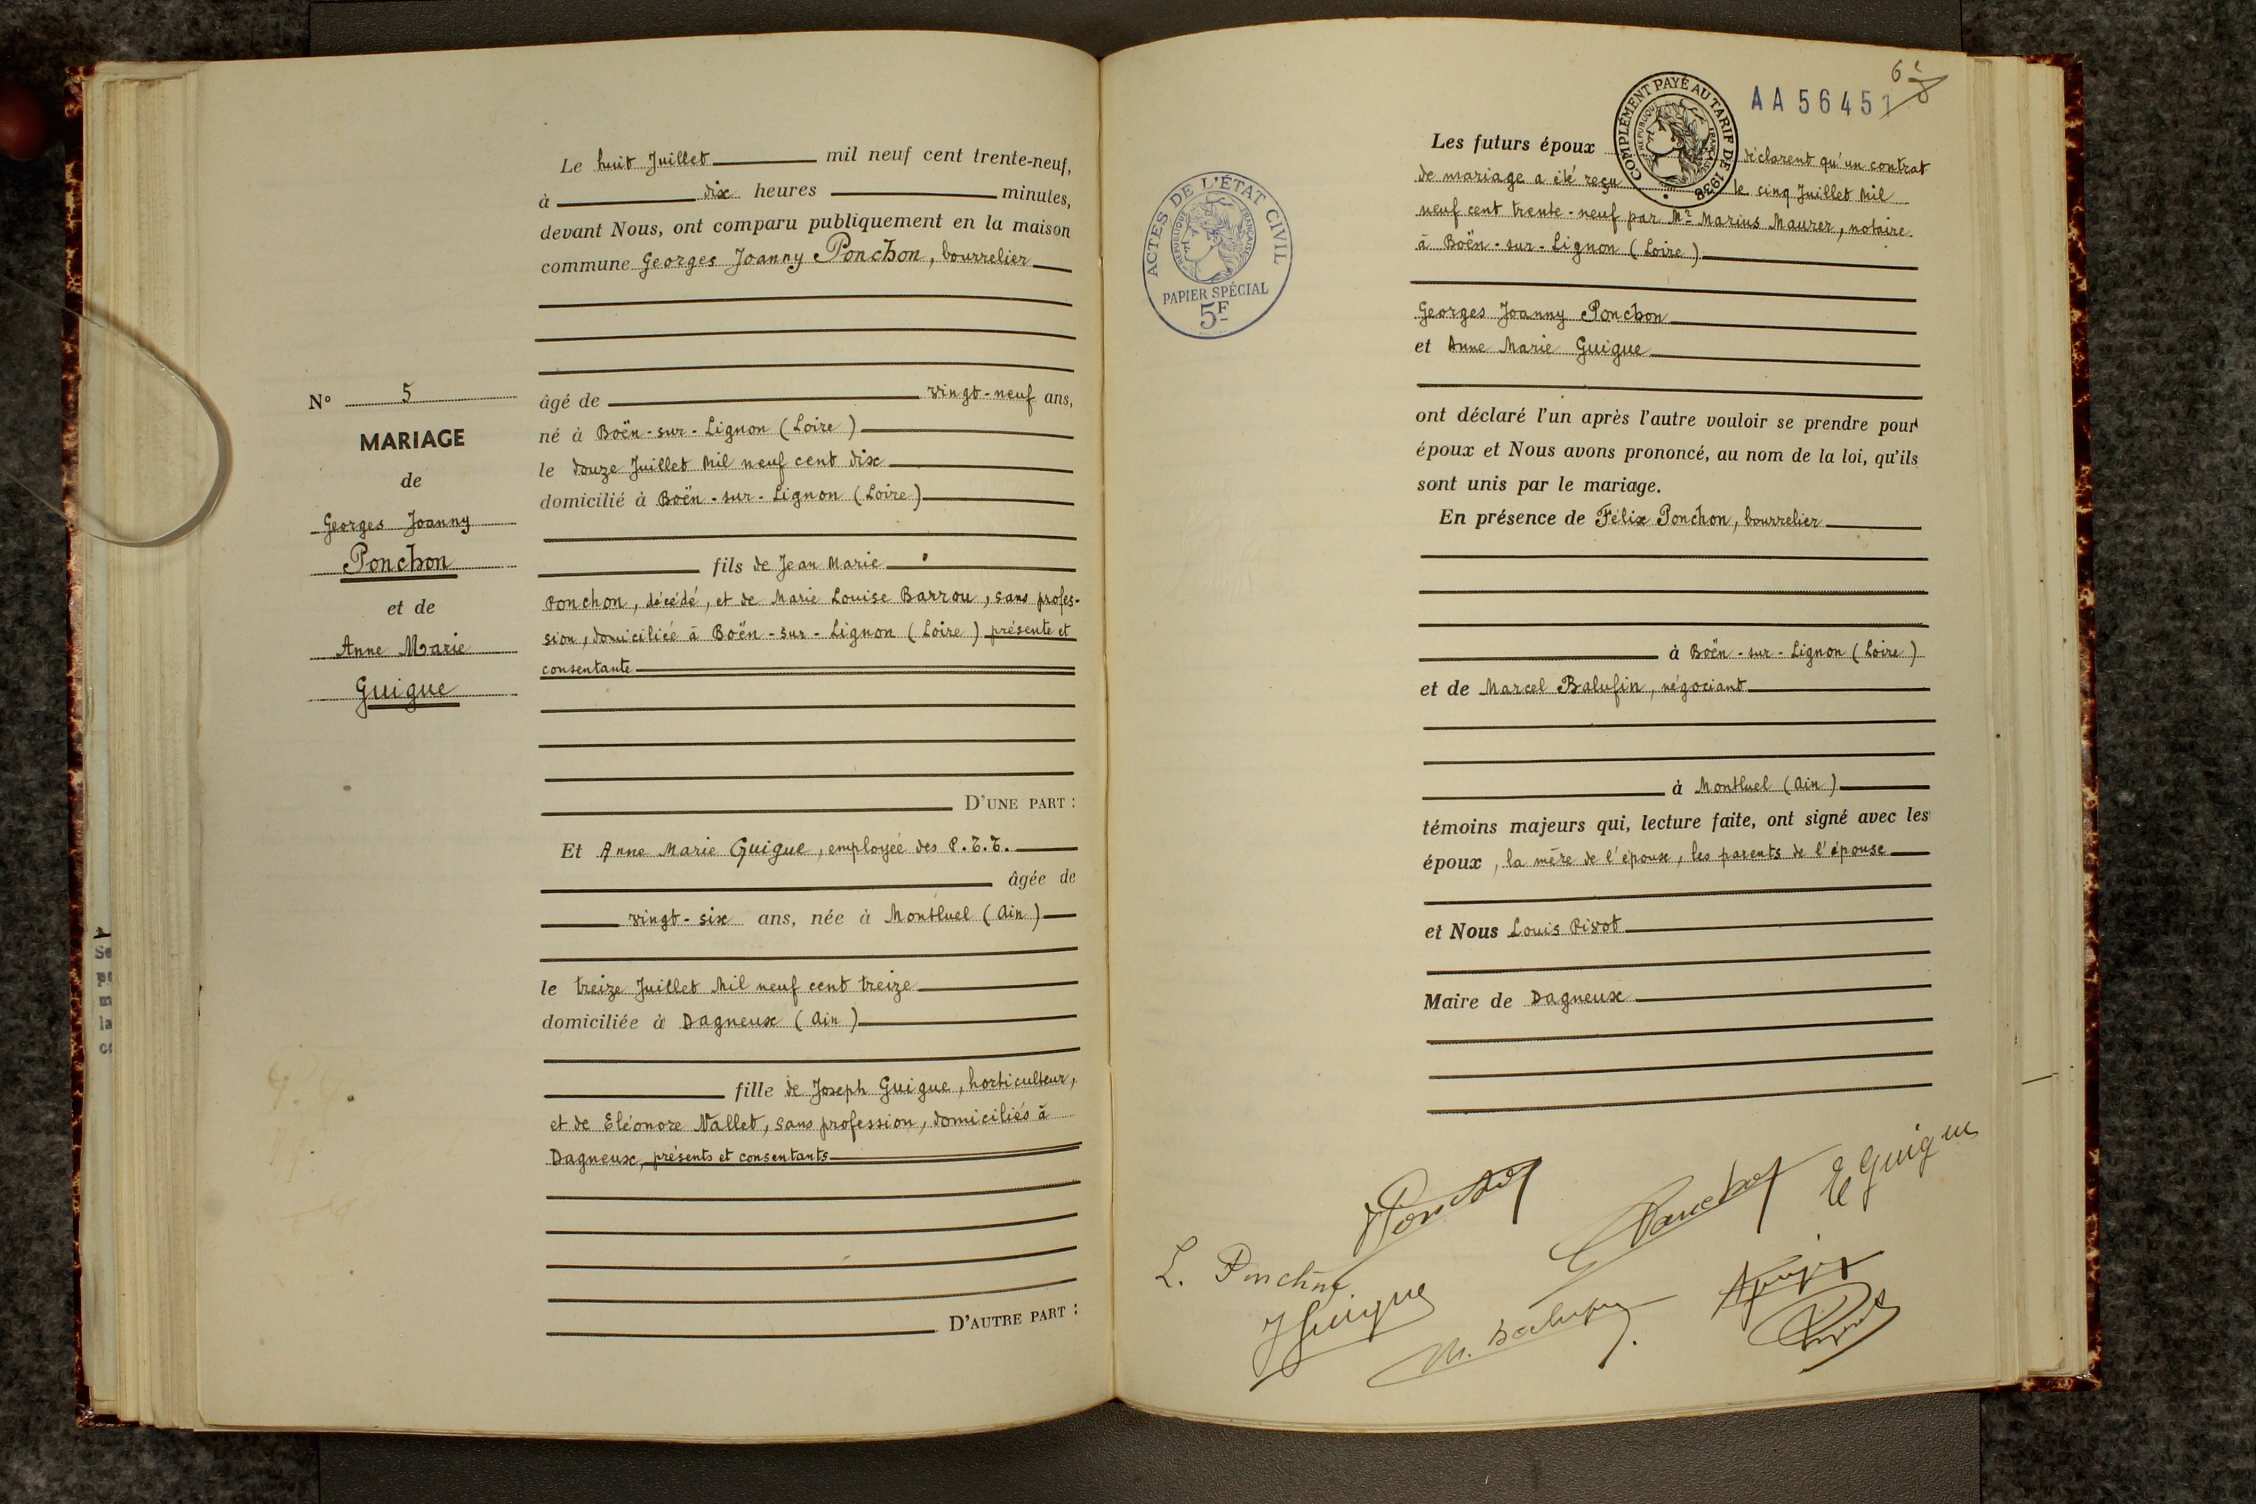 N° 5
MARIAGE
de
Georges Joanny
Ponchon
et de
Anne Marie
Guigue
Le huit Juillet mil neuf cent trente-neuf,
à dix heures minutes,
devant Nous, ont comparu publiquement en la maison
commune Georges Joanny Ponchon, bourrelier
âgé de vingt-neuf ans,
né à Boën-sur-Lignon (Loire)
le douze Juillet mil neuf cent dix
domicilié à Boën-sur-Lignon (Loire)
fils de Jean Marie
Ponchon, décédé, et de Marie Louise Barrou, sans profes-
sion, domiciliée à Boën-sur-Lignon (Loire) présente et
consentante
D'UNE PART :
Et Anne Marie Guigue, employée des P.T.T.
âgée de
vingt-six ans, née à Montluel (Ain)
le treize Juillet mil neuf cent treize
domiciliée à Dagneux (Ain)
fille de Joseph Guigue, horticulteur,
et de Eléonore Vallet, sans profession, domiciliés à
Dagneux, présents et consentants
D'AUTRE PART :
ACTES DE L'ÉTAT CIVIL
RÉPUBLIQUE FRANÇAISE
PAPIER SPÉCIAL
5F
COMPLÉMENT PAYÉ AU TARIF DE 1938
RÉPUBLIQUE FRANÇAISE
AA 56451
6
Les futurs époux déclarent qu'un contrat
de mariage a été reçu le cinq Juillet mil
neuf cent trente-neuf par Mr Marius Maurer, notaire
à Boën-sur-Lignon (Loire)
Georges Joanny Ponchon
et Anne Marie Guigue
ont déclaré l'un après l'autre vouloir se prendre pour
époux et Nous avons prononcé, au nom de la loi, qu'ils
sont unis par le mariage.
En présence de Félix Ponchon, bourrelier
à Boën-sur-Lignon (Loire)
et de Marcel Balufin, négociant
à Montluel (Ain)
témoins majeurs qui, lecture faite, ont signé avec les
époux, la mère de l'époux, les parents de l'épouse
et Nous Louis Pivot
Maire de Dagneux
Ponchon
Ponchon
E Guigue
L. Ponchon
J Guigue
M. Balufin
A Guigue
Pivot